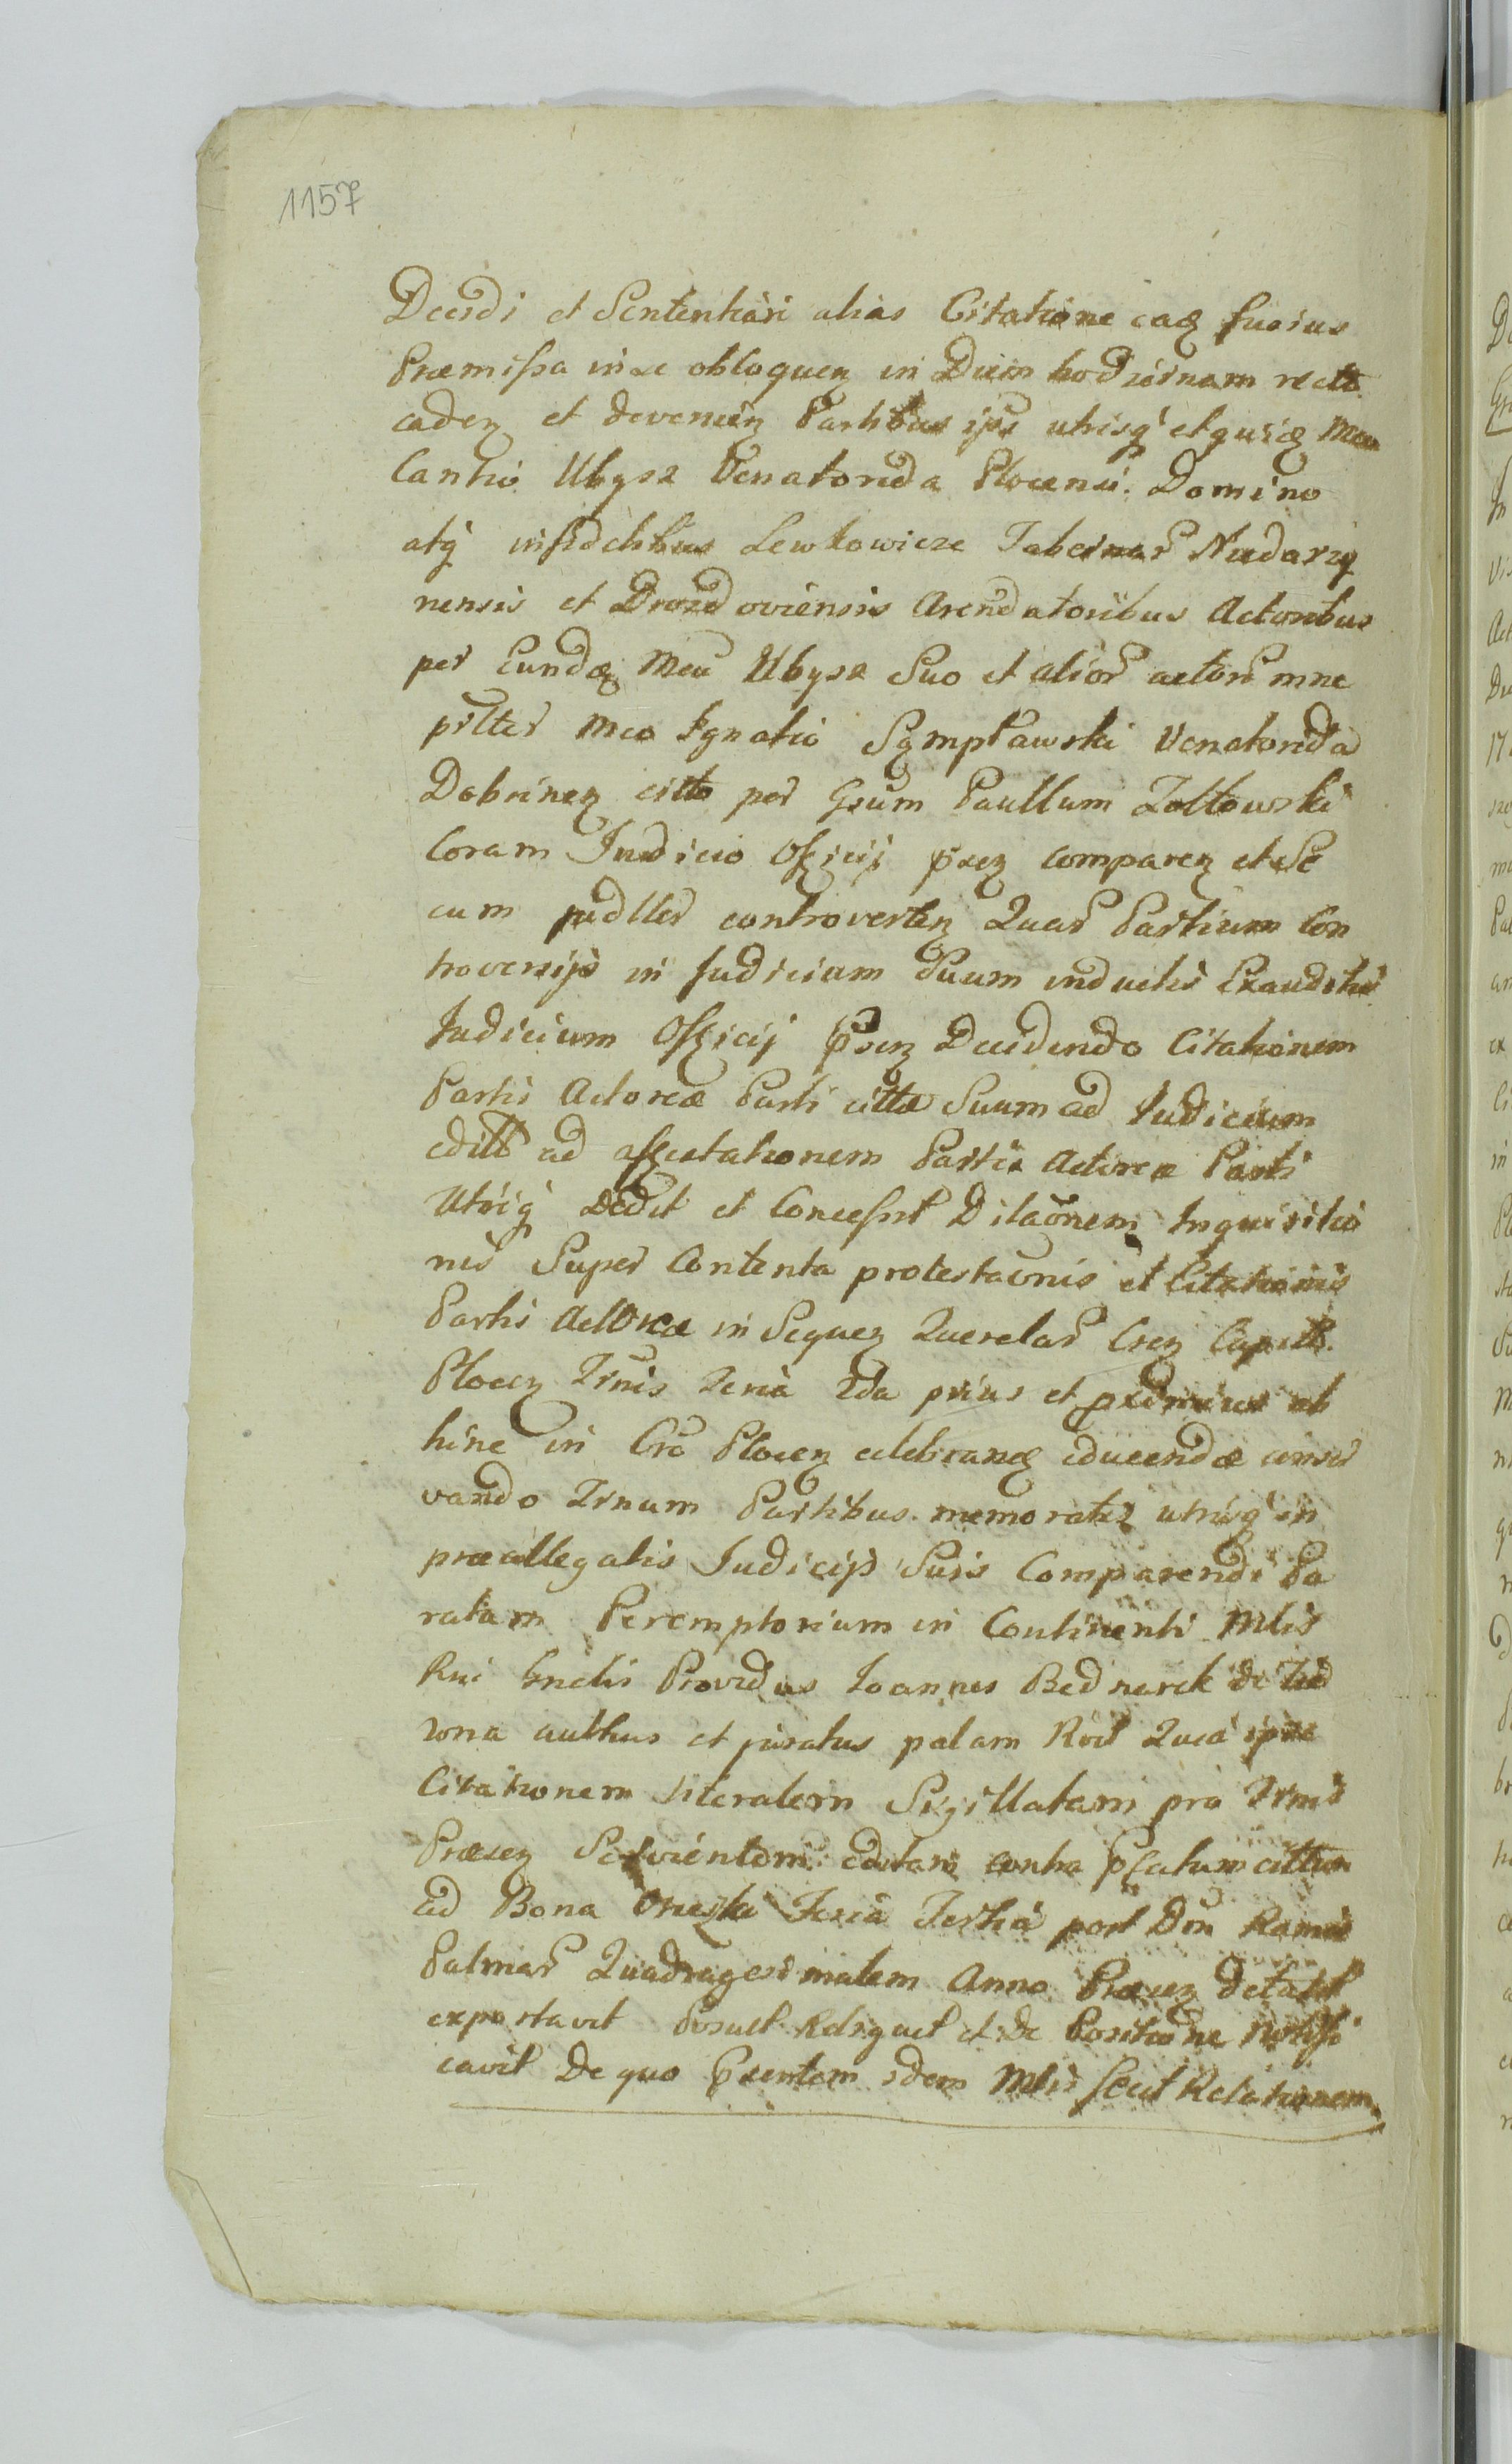 1157
Decidi et Sententiari alias Citatione eaq fusius
Præmissa in se obloquen in Diem hodiernam recte
caden et devenien Partibus ipsis utrisq et quidq Mco
Cantio Ubysz Venatorida Plocensi. Domino
atq infidelibus Lewkowicze Tabernar Nudarzy
nensis et Drozdoviensis Arendatoribus Actoribus
per Eundq Mcu Ubysz Suo et alior actor nne
prlter Mco Ignatio Sgmpławski Venatorida
Dobrinen citto per Gsum Paullum Zołtowski
Coram Judicio Officij prsen comparen et Se
cum judller controverten Quar Partium Con
troversijs in Judicium Suum inductis Exauditis
Judicium Officij Prsen Decidendo Citationem
Partis Actoreæ Parti cittæ Suum ad Judicium
editt ad affectationem Partis Actoreæ Parti
Utriq Dedit et Concessit Dilaonem Inquisitio
nis Super Contenta protestaonis et Citationis
Partis Actoreæ in Sequen Querelar Cren Capitt.
Plocen Trnis Feria 2da prius et proximius ab
hinc in Cro Plocen celebranq educendæ conser
vando Trnum Partibus memoratis utrisq in
præallegatis Judicijs Suis Comparendi Pa
ratum Peremptorium in Continenti Mtlis
Rni Gnelis Providus Joannes Bednarek de
zona authus et juratus palam Rcit Quia ipse
Citationem literalem Sigillatam pro Trnis
Præsen Servientem editam contra pfatum cittum
ad Bona Feria Tertia post Dom Ramis
Palmar Quadragesimalem Anno Præsen Detulit
exportavit Posuit Reliquit et De Positione notifi
cavit De quo Prsentem idem Mtlis fecit Relationem.